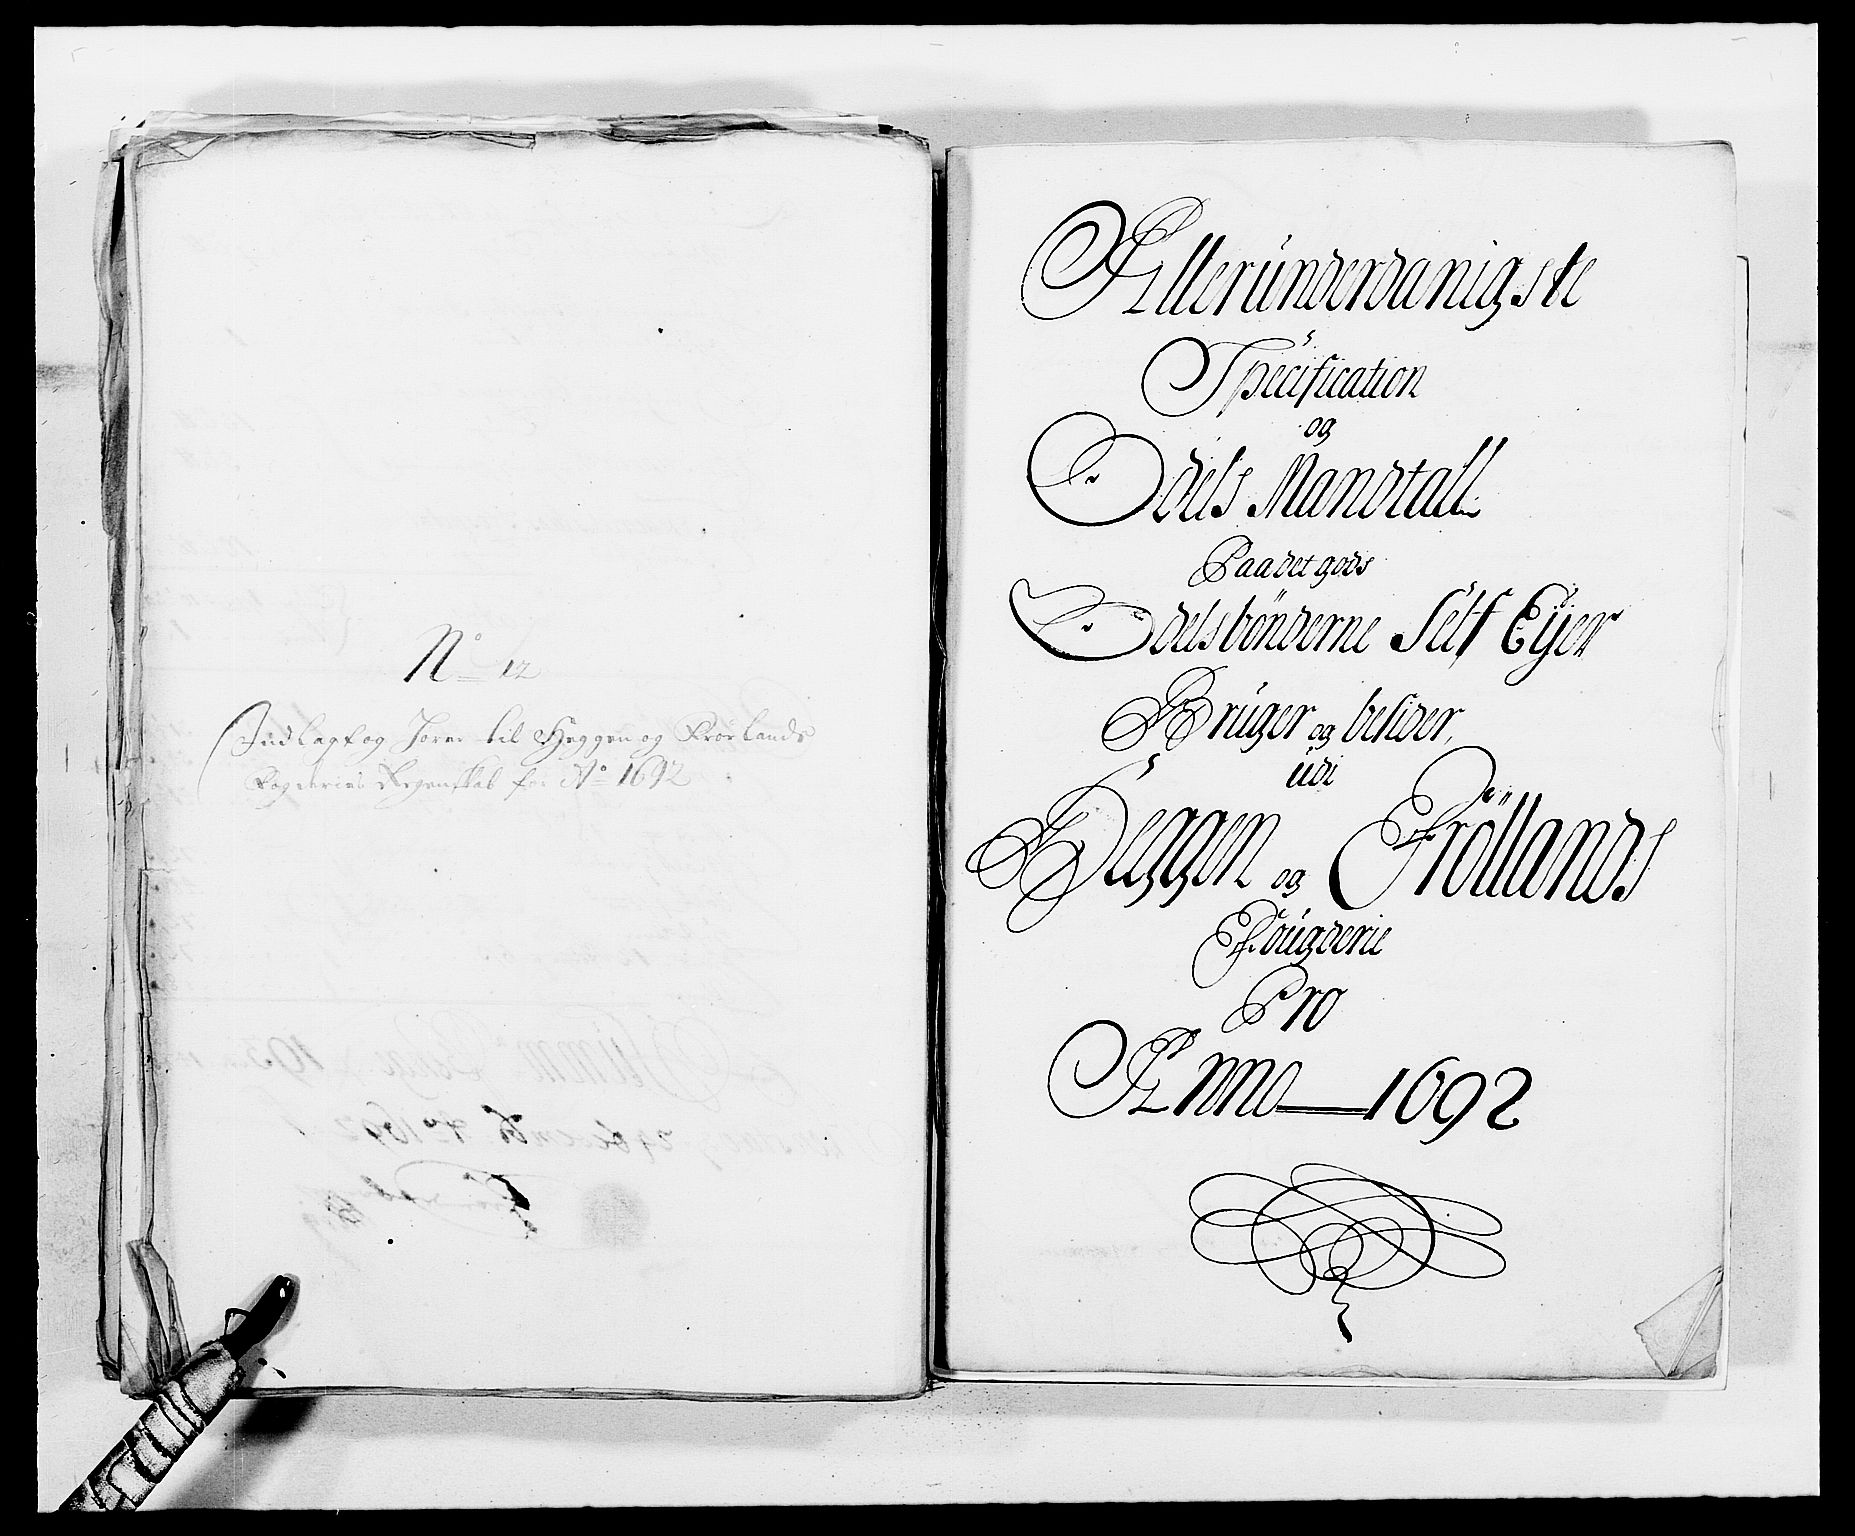 No 12
Indlagt og hører til Heggen og Frørlands
Fogderies Regenskab for Ao 1692
Allerunderdanigste
Specification
og
Odels Mandtall
Paa det gods
Odelsbönderne Self Eÿer
Bruger og besider,
udi
Heggen og Fröllands
Fougderie
Pro
Anno 1692